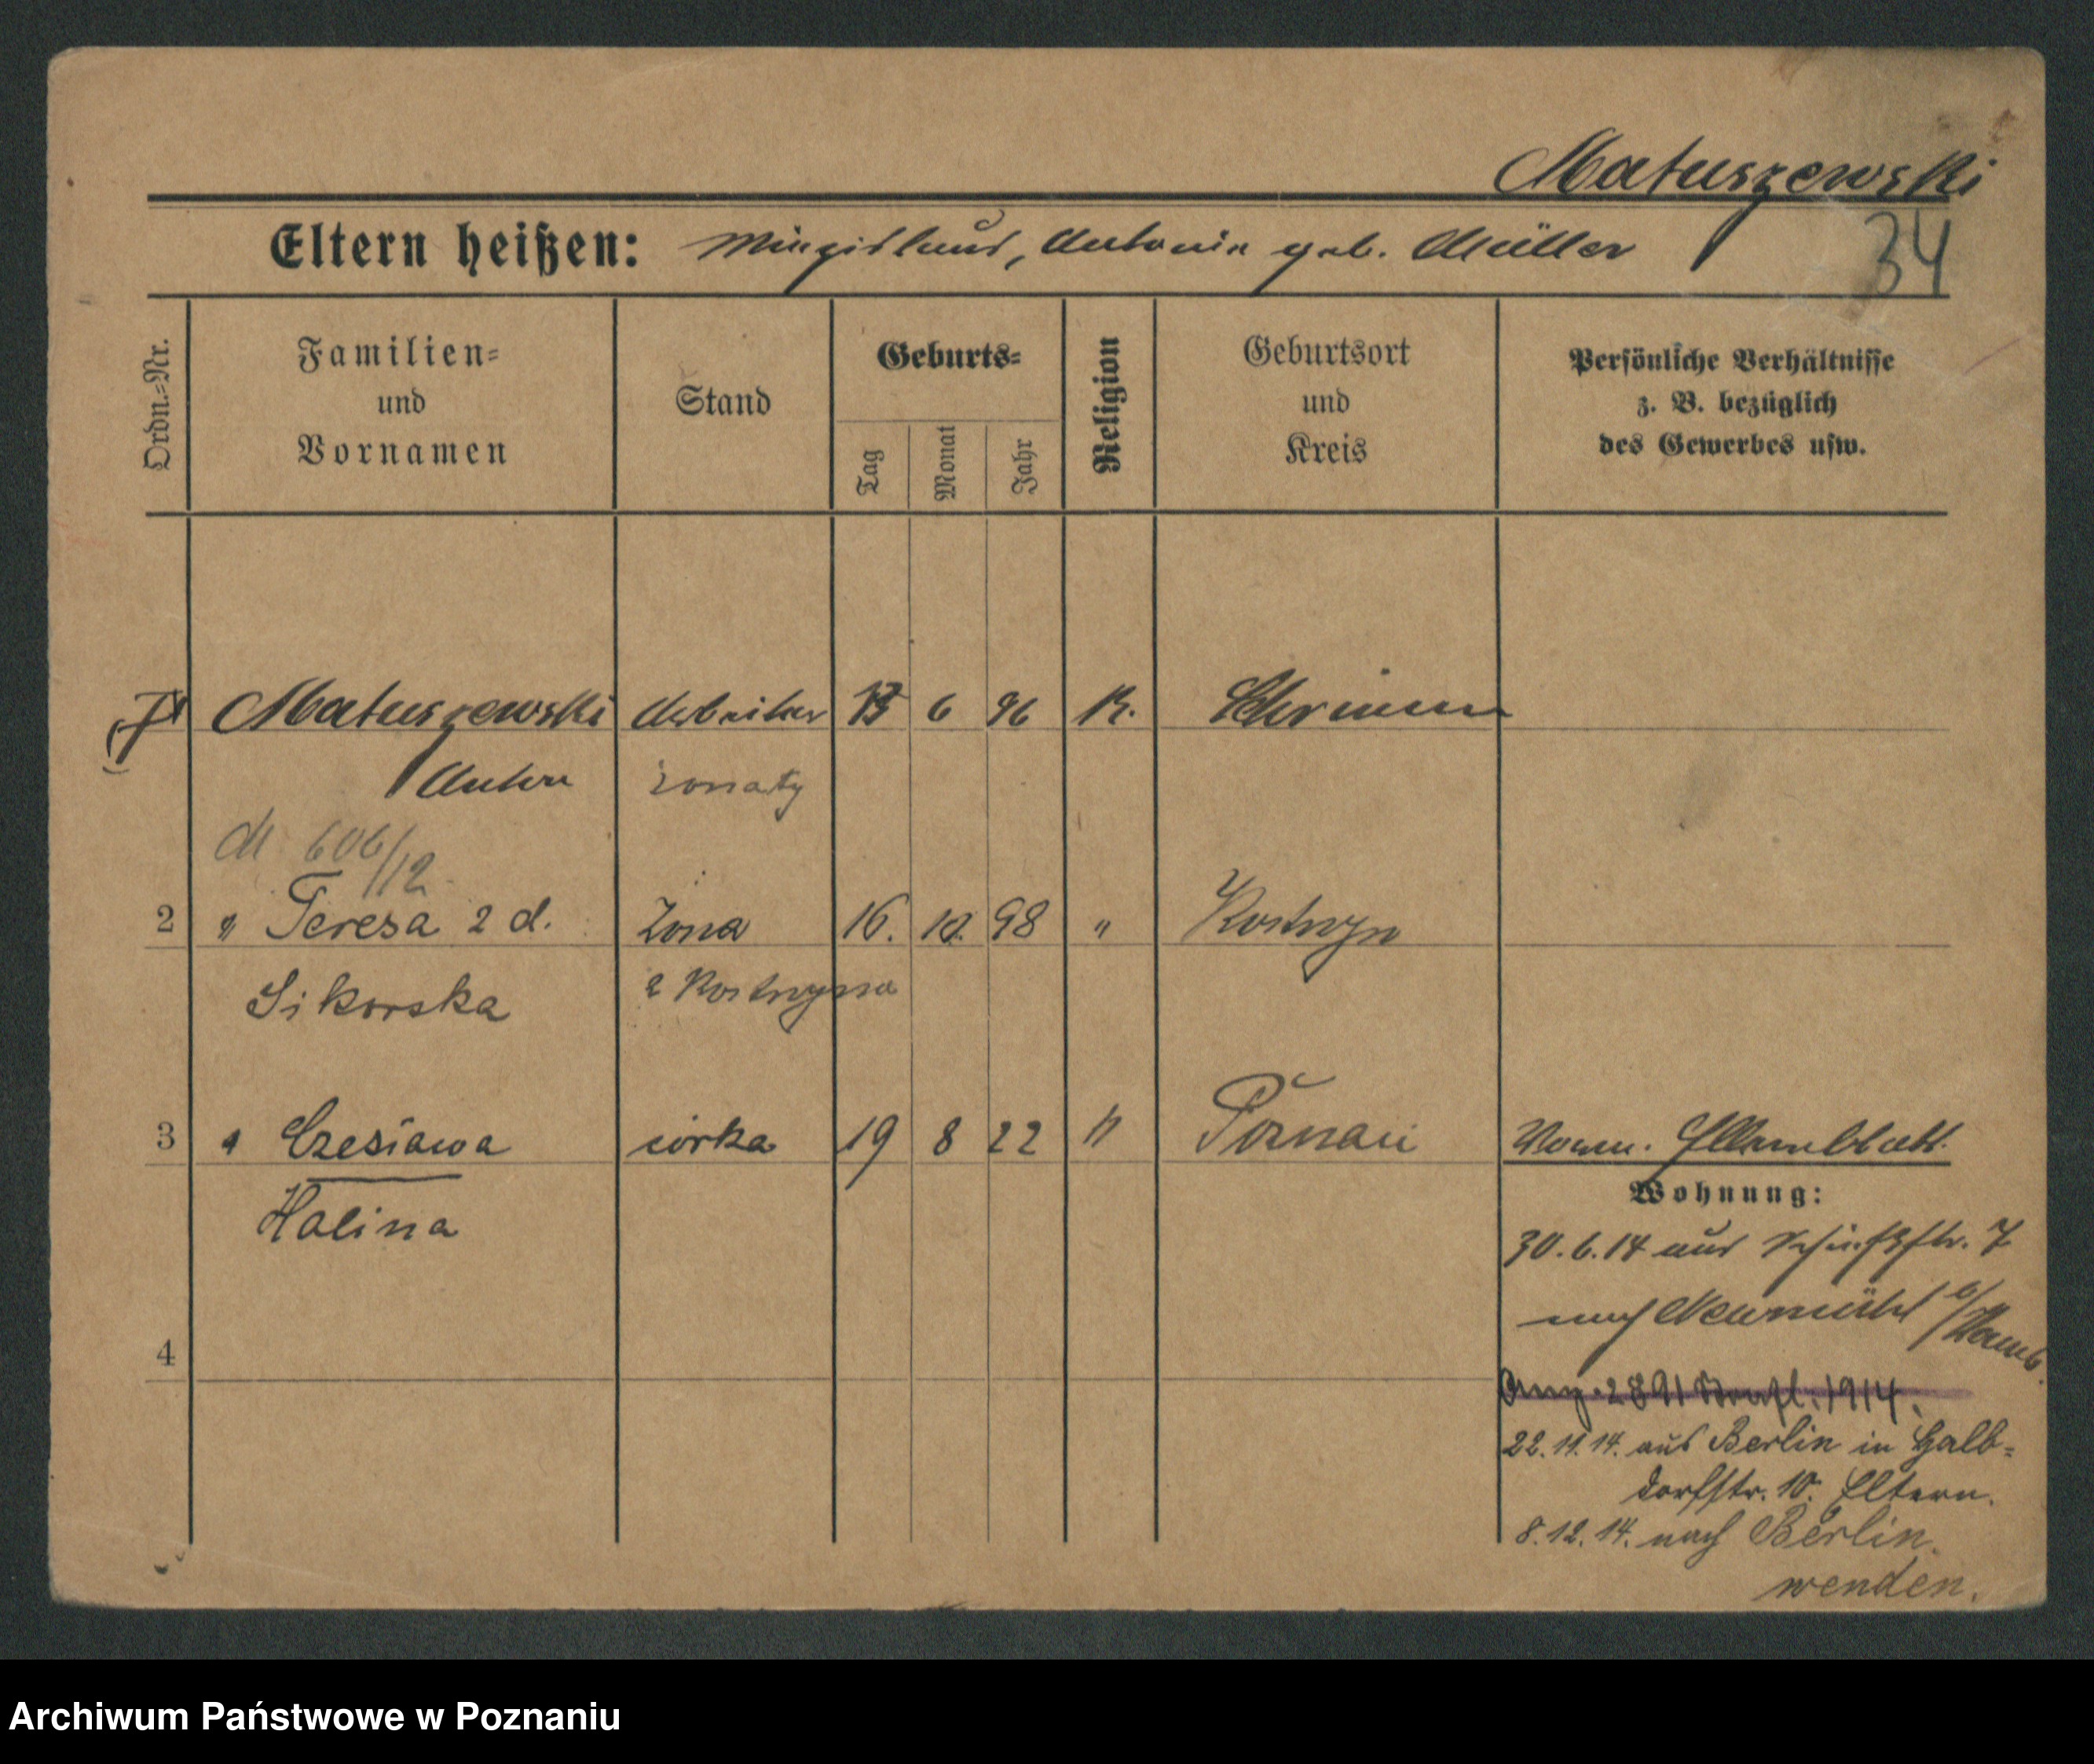 Matuszewski
34
Eltern heißen: Antonie geb. Müller
Ordn.=Nr.
Familien=
und
Vornamen
Stand
Geburts=
Tag
Monat
Jahr
Religion
Geburtsort
und
Kreis
Persönliche Verhältnisse
z. B. bezüglich
des Gewerbes usw.
Matuszewski Arbeiter 6 96 K. Schrimm
Anton żonaty
M 606/12
2 " Teresa z d. żona 16. 10. 98 " Kostrzyn
Sikorska z Kostrzyna
3 " Czesława córka 19 8 22 " Poznań
Halina
4
Wohnung:
30.6.14 aus 7
nach Neumühl
2891 1914.
22.11.14. aus Berlin in Halb=
dorfstr. 10. Eltern.
8.12.14. nach Berlin.
wenden.
Archiwum Państwowe w Poznaniu